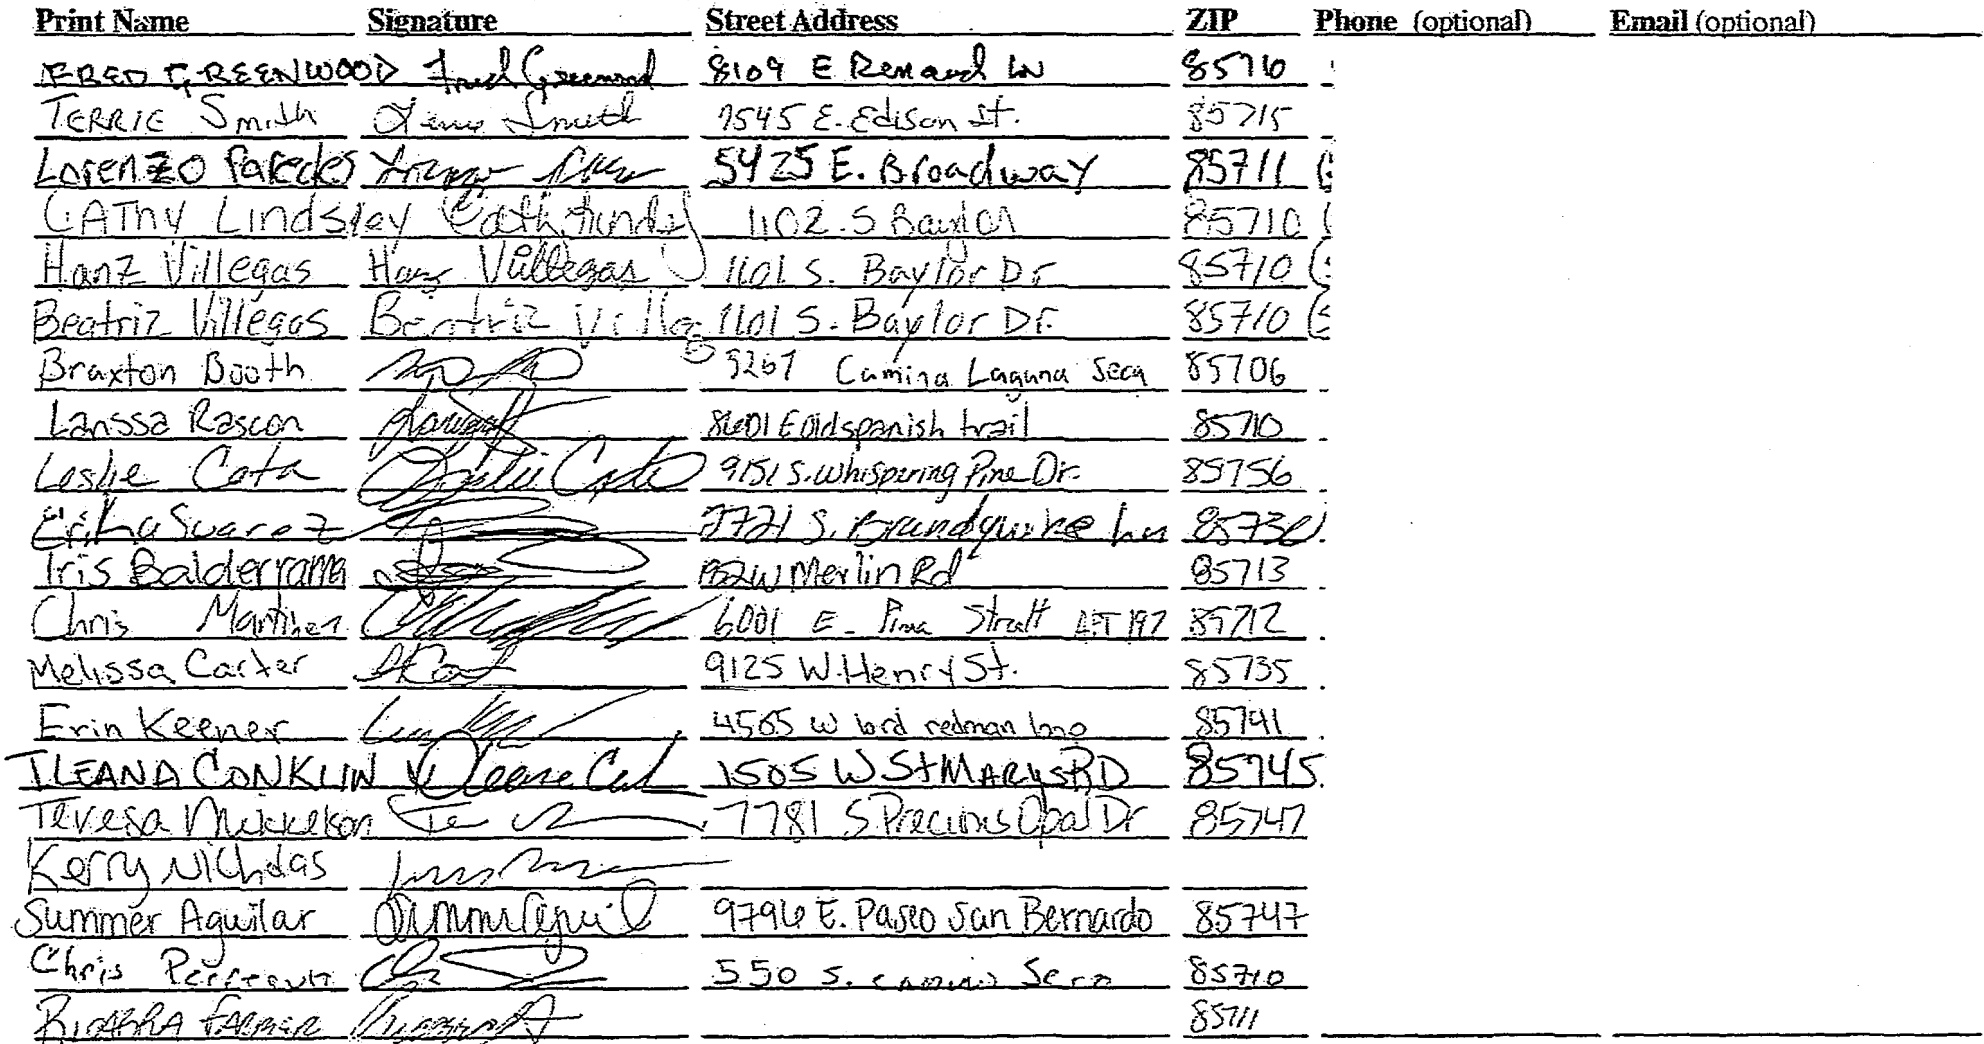 Print Name Signature Street Address ZIP Phone (optional) Email (optional)
FRED GREENWOOD Fred Greenwood 8109 E Renaud LN 85710
TERRIE Smith Terrie Smith 7545 E. Edison St. 85715
Lorenzo Paredes 5425 E. Broadway 85711 (
CATHy Lindsley 1102 S Baylor 85710 (
Hanz Villegas Hanz Villegas 1101 S. Baylor Dr 85710 (
Beatriz Villegas Beatriz Villeg 1101 S. Baylor Dr. 85710 (
Braxton Booth Camina Laguna Seca 85706
Larissa Rascon 8601 E Old spanish trail 85710
Leslie Cota Leslie Cota 9151 S. Whispering Pine Dr. 85756
Erika Suarez 2721 S. Ln 85730
Iris Balderrama W Merlin Rd 85713
Chris Martinez 6001 E. Pima APT 197 85712
Melissa Carter 9125 W. Henry St. 85735
Erin Keener 4565 W lord redman 85741
ILEANA CONKLIN 1505 W St MARYS RD 85745
Teresa Mikkelson 7781 S Precious Opal Dr 85747
Kerry Nicholas
Summer Aguilar 9796 E. Paseo San Bernardo 85747
Chris Perreault 550 S. camino Seco 85710
FARMER 85711